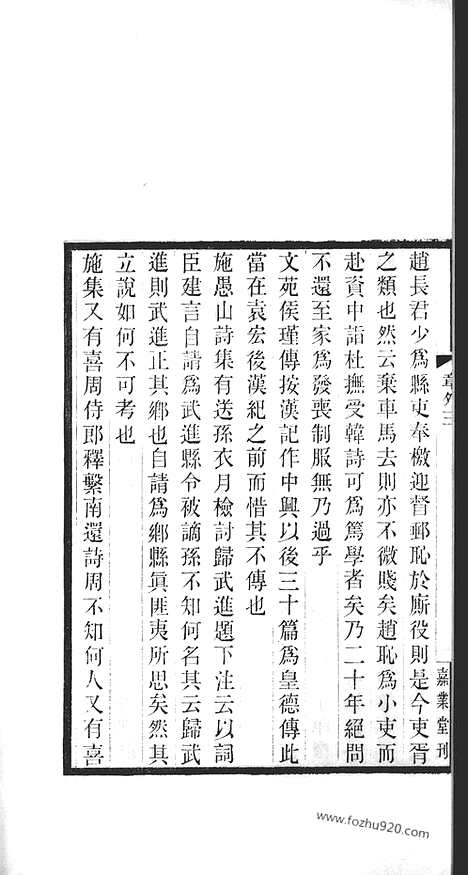 趙長君少爲縣吏奉檄迎督郵恥於廝役則是今吏胥
之類也然云棄車馬去則亦不微賤矣趙恥爲小吏而
赴資中詣杜撫受韓詩可爲篤學者矣乃二十年絕問
不還至家爲發喪制服無乃過乎
文苑侯瑾傳按漢記作中興以後三十篇爲皇德傳此
當在袁宏後漢紀之前而惜其不傳也
施愚山詩集有送孫衣月檢討歸武進題下注云以詞
臣建言自請爲武進縣令被謫孫不知何名其云歸武
進則武進正其鄉也自請爲鄉縣眞匪夷所思矣然其
立說如何不可考也
施集又有喜周侍郎釋繫南還詩周不知何人又有喜
章外三
嘉業堂刊
www.fozhu920.com